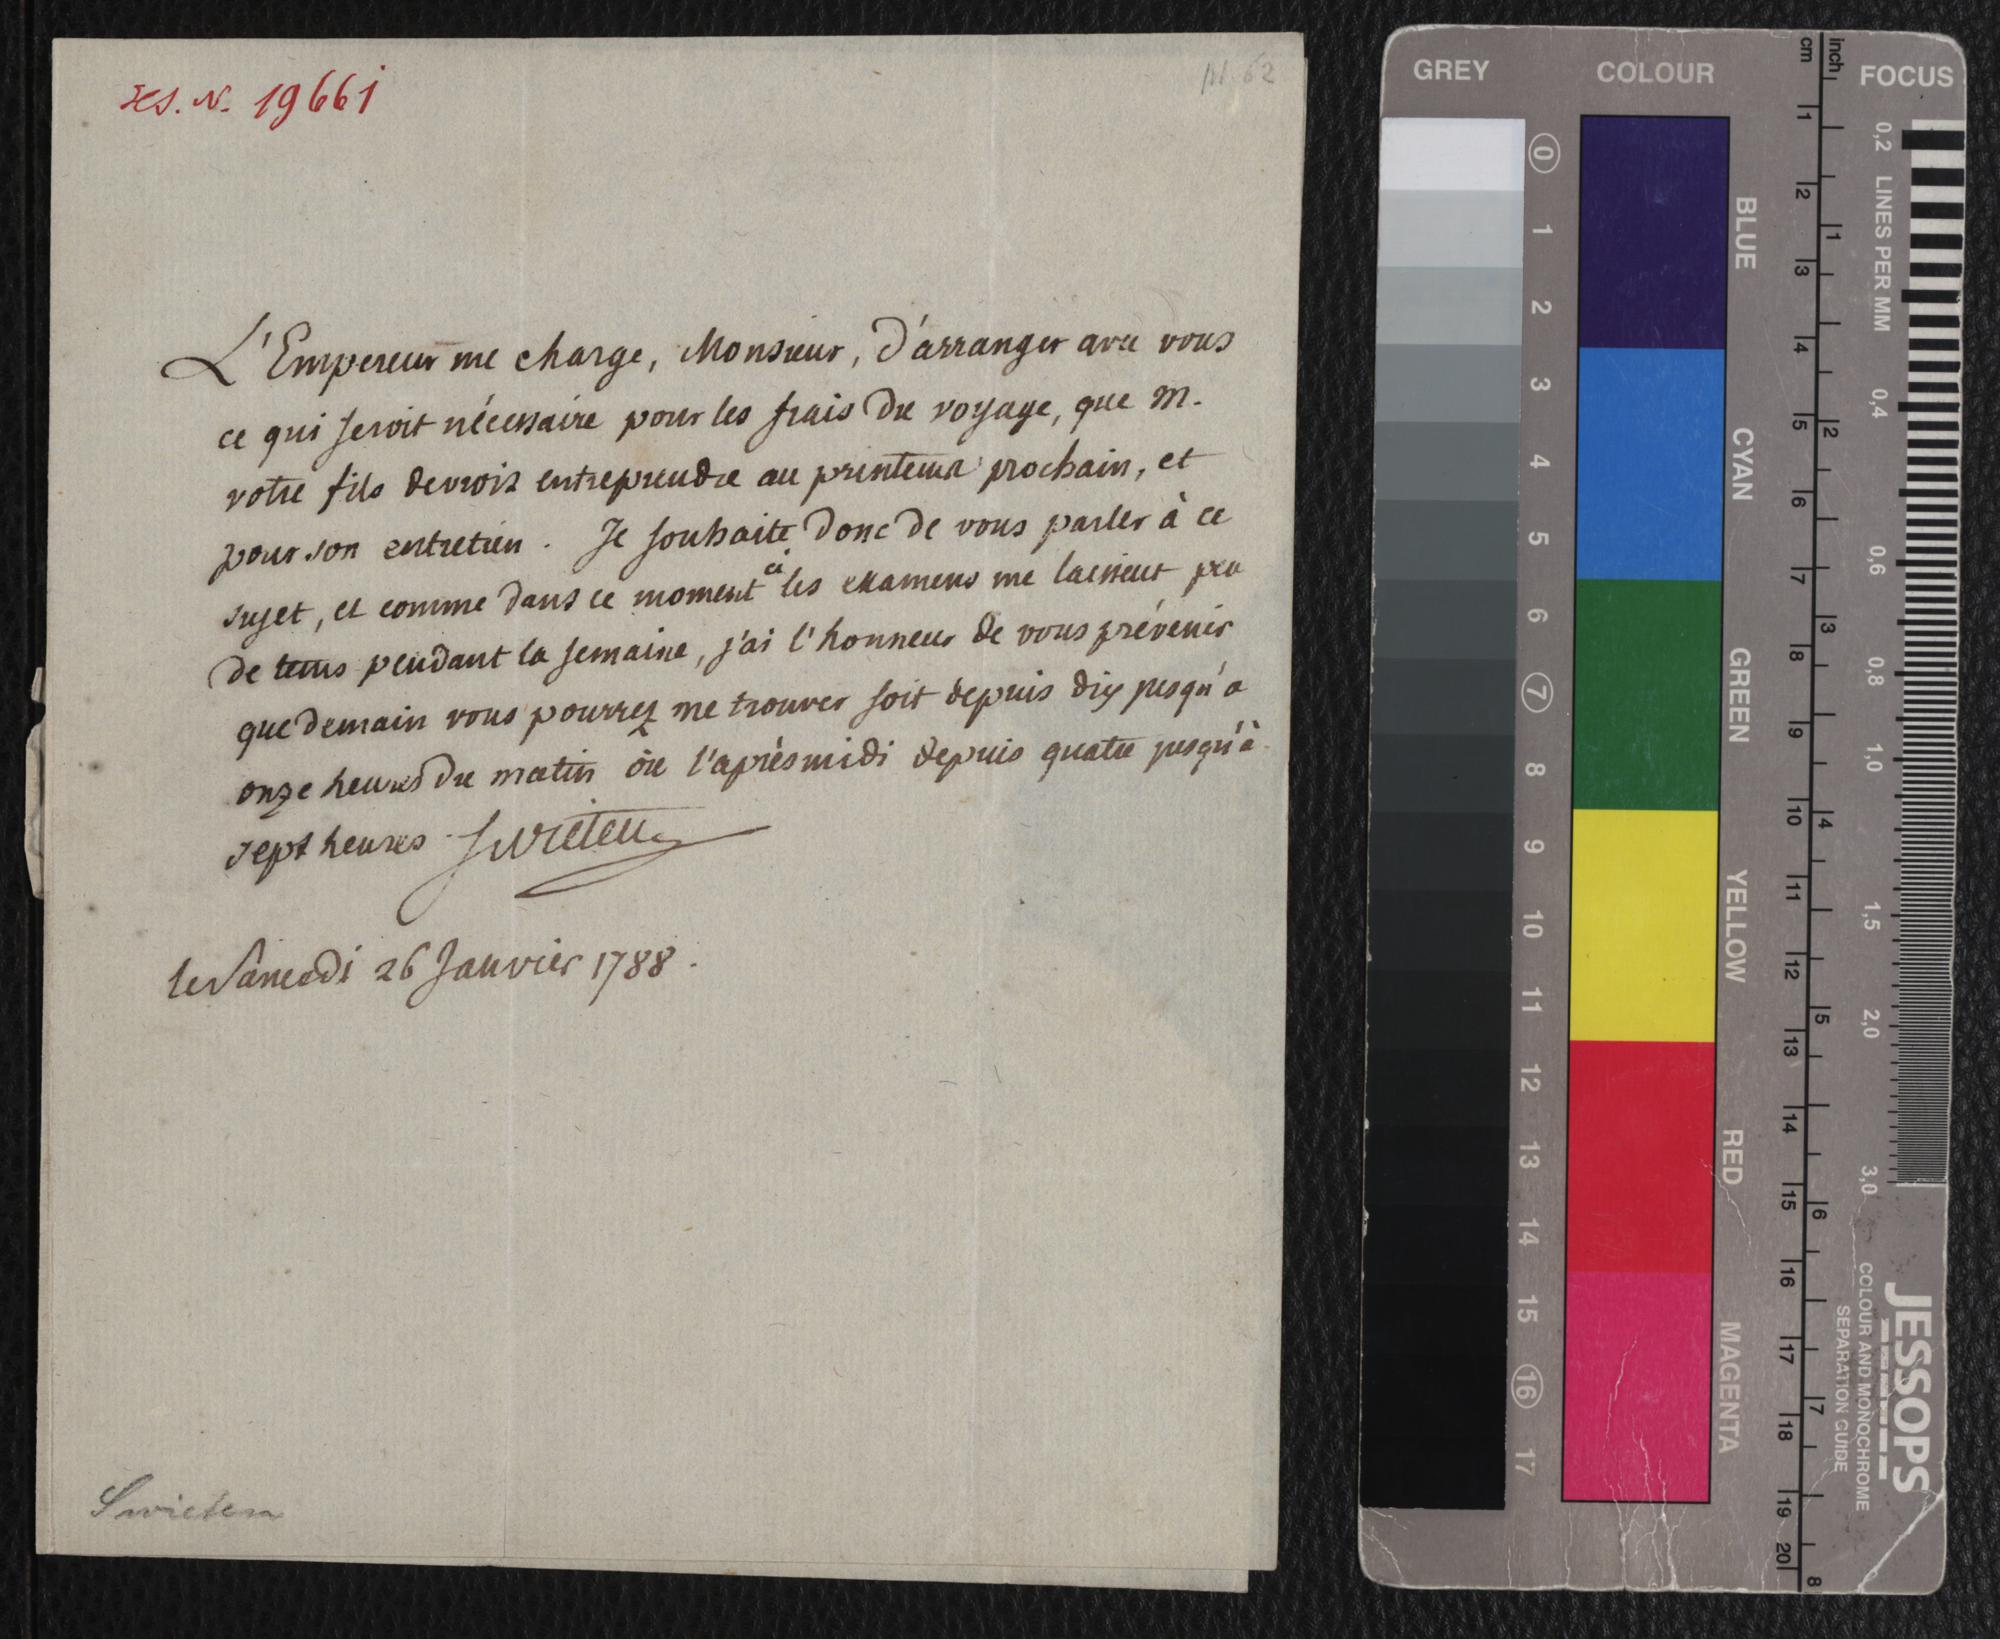 I.N. 19661
M. 62
L'Empereur me charge, Monsieur, d'arranger avec vous
ce qui seroit nécessaire pour les frais du voyage, que M.
votre fils devroit entreprendre au printems prochain, et
pour son entretien. Je souhaite donc de vous parler à ce
sujet, et comme dans ce moment ci les examens me laissent peu
de tems pendant la semaine, j'ai l'honneur de vous prévenir
que demain vous pourrez me trouver soit depuis dix jusqu'a
onze heures du matin où l'aprèsmidi depuis quatre jusqu'à
sept heures. Swieten
le Samedi 26 Janvier 1788.
Swieten
GREY
COLOUR
cm
inch
FOCUS
0 1 2 3 4 5 6 7 8 9 10 11 12 13 14 15 16 17
BLUE
CYAN
GREEN
YELLOW
RED
MAGENTA
1 2 3 4 5 6 7 8 9 10 11 12 13 14 15 16 17 18 19 20
1 2 3 4 5 6 7 8
0,2 LINES PER MM 0,4 0,6 0,8 1,0 1,5 2,0 3,0
JESSOPS
COLOUR AND MONOCHROME
SEPARATION GUIDE